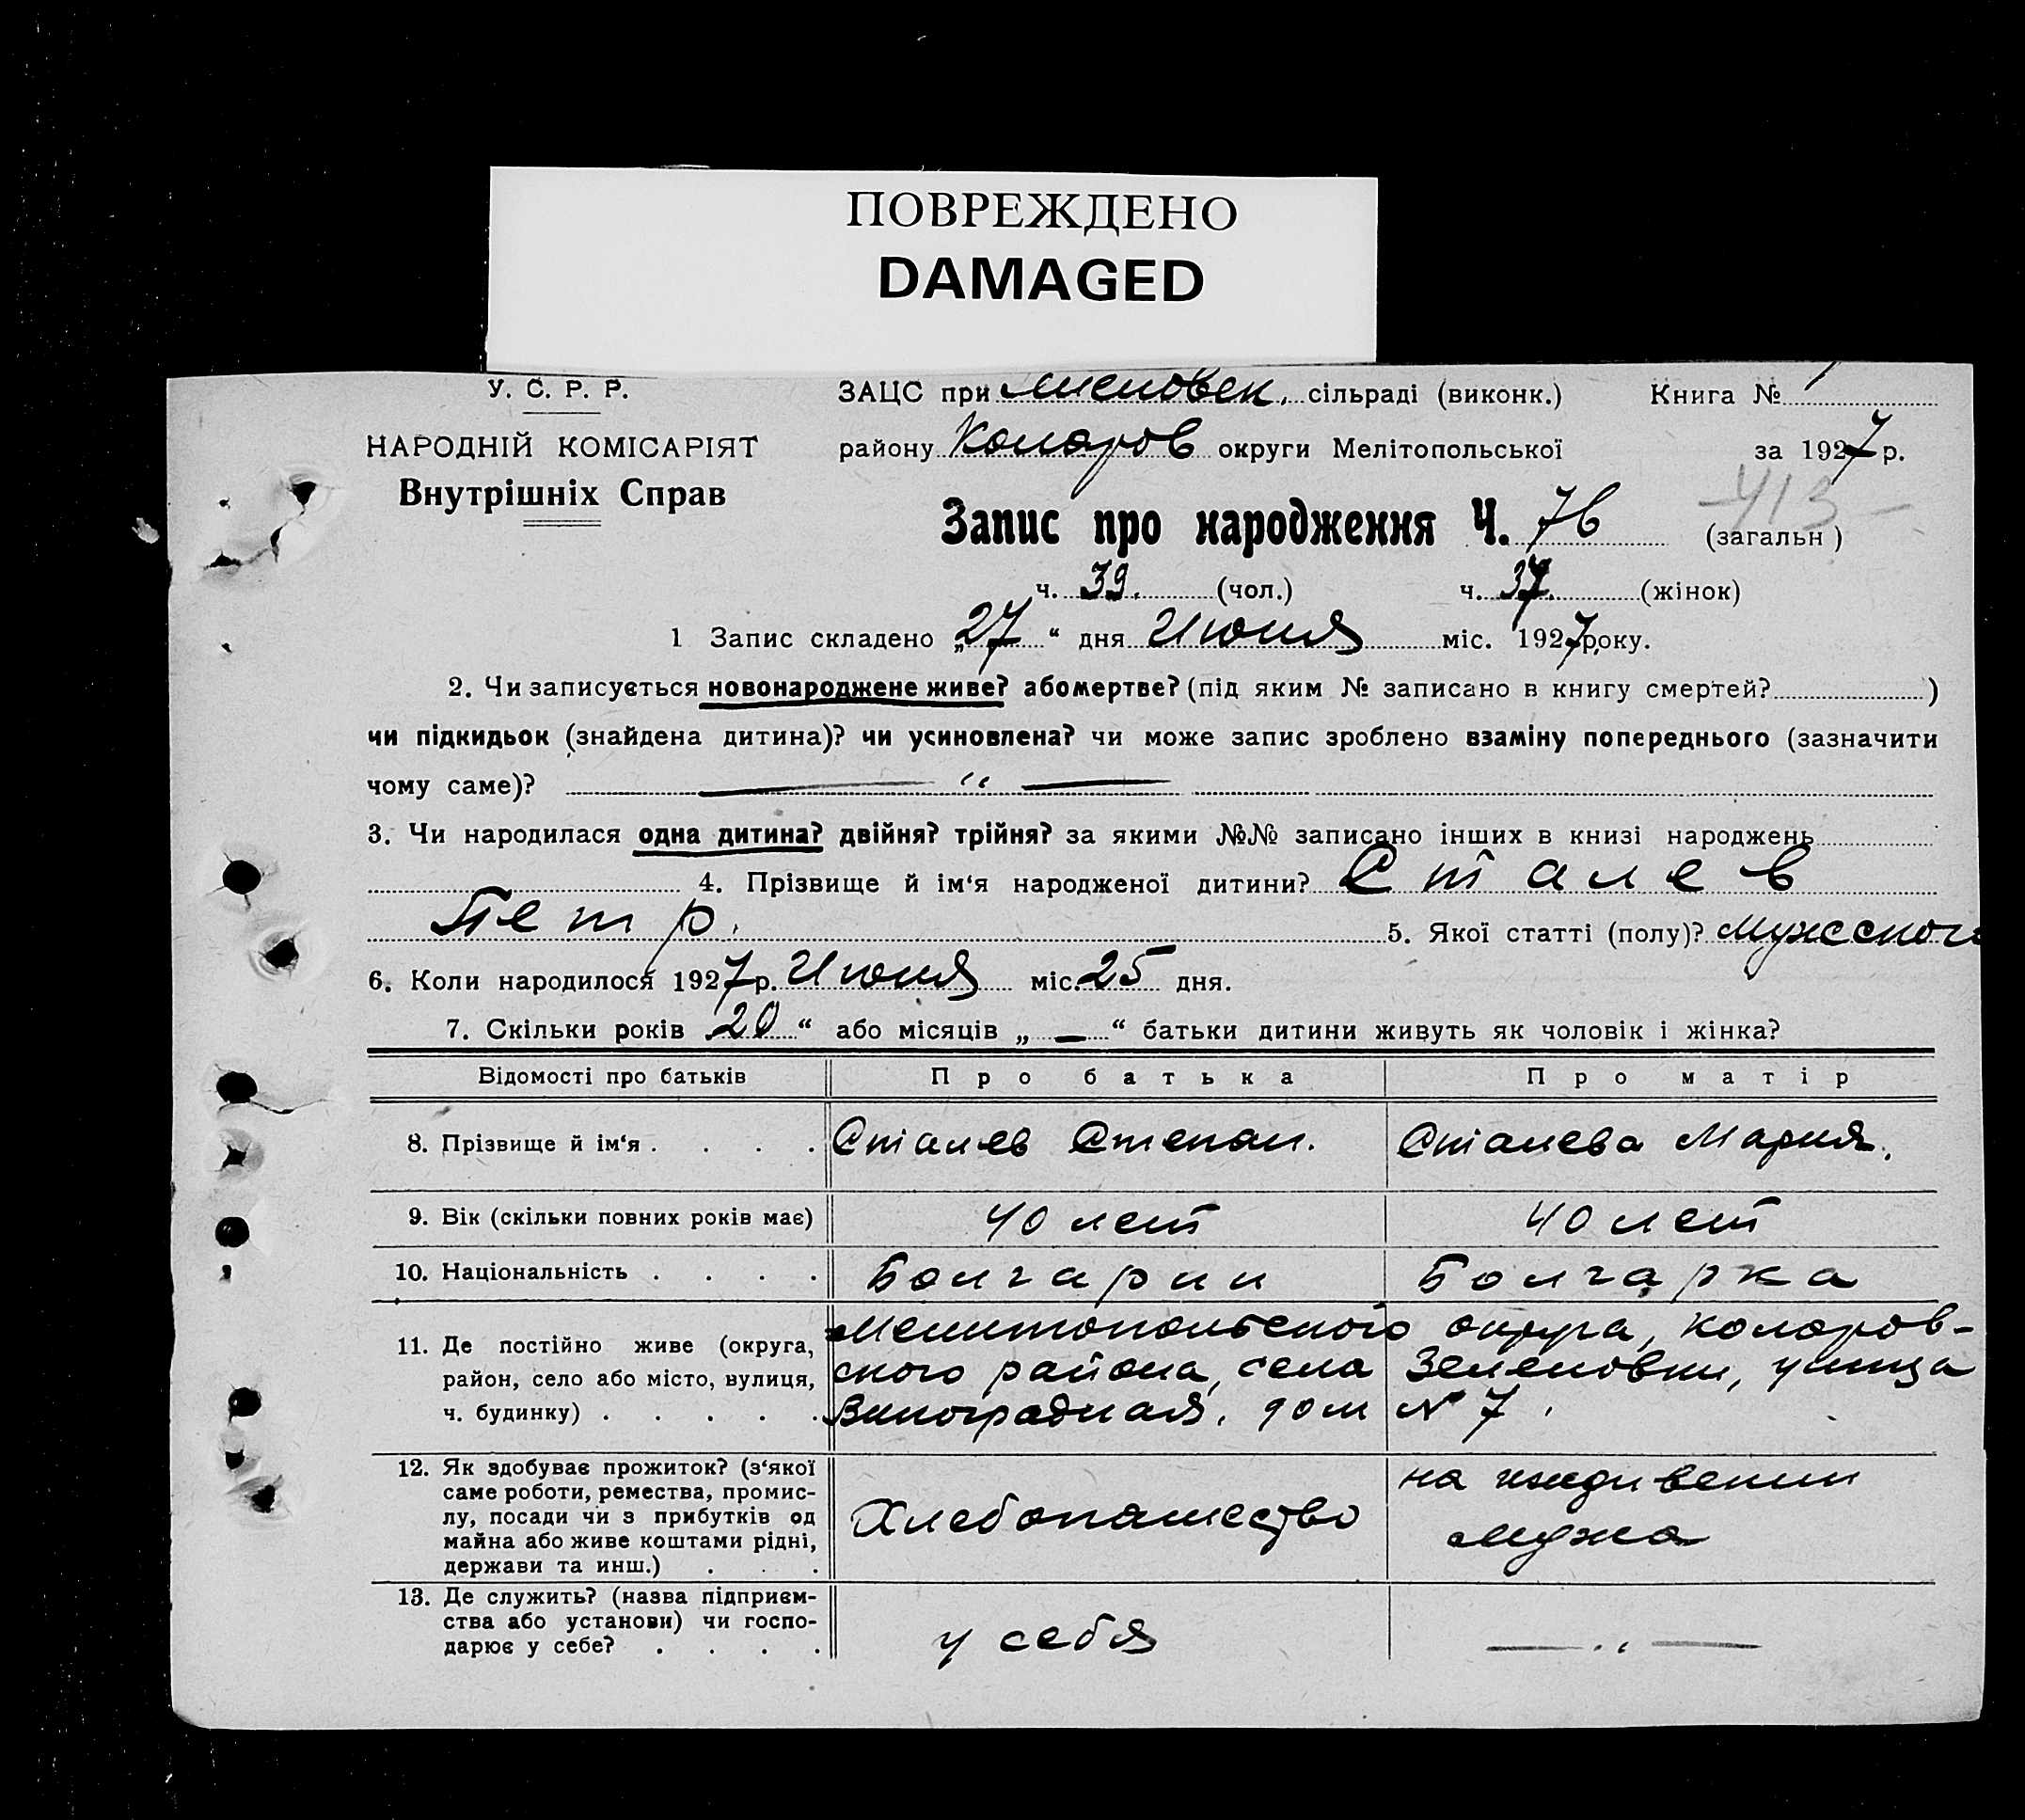 ПОВРЕЖДЕНО
DAMAGED
У. С. Р. Р.
ЗАЦС при сільраді (виконк.) Книга № 1
НАРОДНІЙ КОМІСАРІЯТ
району Коларов округи Мелітопольської за 1927 р.
Внутрішніх Справ
413
Запис про народження Ч. 76 (загальн)
ч. 39. (чол.) ч. 37. (жінок)
1 Запис складено „27“ дня Июня міс. 1927 року.
2. Чи записується новонароджене живе? або мертве? (під яким № записано в книгу смертей? )
чи підкидьок (знайдена дитина)? чи усиновлена? чи може запис зроблено взаміну попереднього (зазначити
чому саме)? — “ —
3. Чи народилася одна дитина? двійня? трійня? за якими №№ записано інших в книзі народжень
4. Прізвище й ім‘я народженої дитини? Сталев
Петр. 5. Якої статті (полу)? Мужского
6. Коли народилося 1927 р. Июня міс. 25 дня.
7. Скільки років „20“ або місяців „—“ батьки дитини живуть як чоловік і жінка?
Відомості про батьків Про батька Про матір
8. Прізвище й ім‘я . . . . Сталев Степан. Сталева Мария.
9. Вік (скільки повних років має) 40 лет 40 лет
10. Національність . . . . Болгарин Болгарка
11. Де постійно живе (округа, район, село або місто, вулиця, ч. будинку) . . . . .
Мелитопольского округа, Коларов-
ского района, села Зеленовки, улица
Виноградная, дом № 7.
12. Як здобуває прожиток? (з‘якої
саме роботи, ремества, промис-
лу, посади чи з прибутків од
майна або живе коштами рідні,
держави та инш.) . . .
Хлебопашество
на иждивении
мужа
13. Де служить? (назва підприєм-
ства або установи) чи госпо-
дарює у себе? . . . .
у себя — “ —